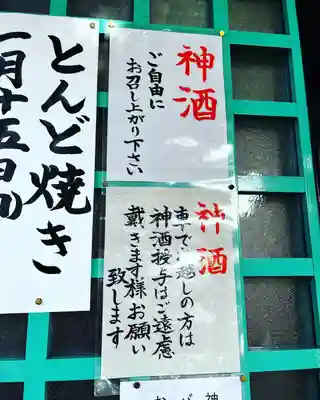 神酒
ご自由に
お召し上がり下さい
神酒
車でお越しの方は
神酒授与はご遠慮
戴きます様お願い
致します
とんど焼き
一月十五日(